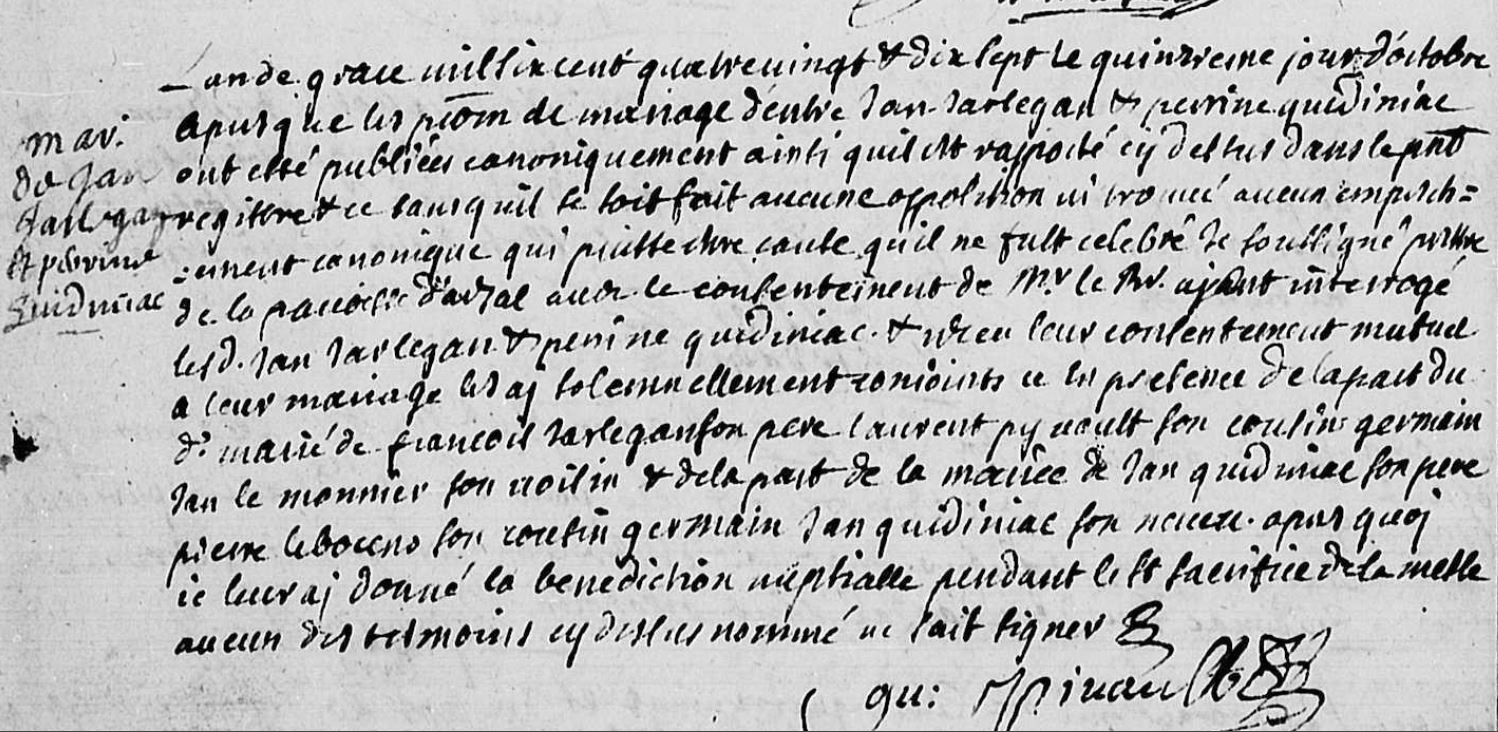 L an de grace mil six cent quatre vingt & dix sept le quinzieme jour d'octobre
apres que les procon de mariage d'entre Jan Jarlegan & perrine quidiniac
ont esté publiées canoniquement ainsi quil est rapporté cy dessus dans le pnt
registre & ce sans quil se soit fait aucune opposition ni trouvé aucun empesch=
=ement canonique qui puisse estre cause qu'il ne fust celebré Je soussigné prestre
de la paroisse d'arzal avec le consentement de Mr le Rr. ajant interrogé
lesd. Jan Jarlegan & perrine quidiniac. & receu leur consentement mutuel
a leur mariage les aj solemnellement conjoints ce en presence de la part du
dt marié de francois Jarlegan son pere laurent pynault son cousin germain
Jan le monnier son voisin & de la part de la mariée de Jan quidiniac son pere
pierre son cousin germain Jan quidiniac son apres quoj
ie leur aj donné la benediction nuptialle pendant le st sacrifice de la messe
aucun des tesmoins cy dessus nommé ne sait signer
gu: pinault
mar.
de Jan
Jarlegan
et perrine
Quidiniac